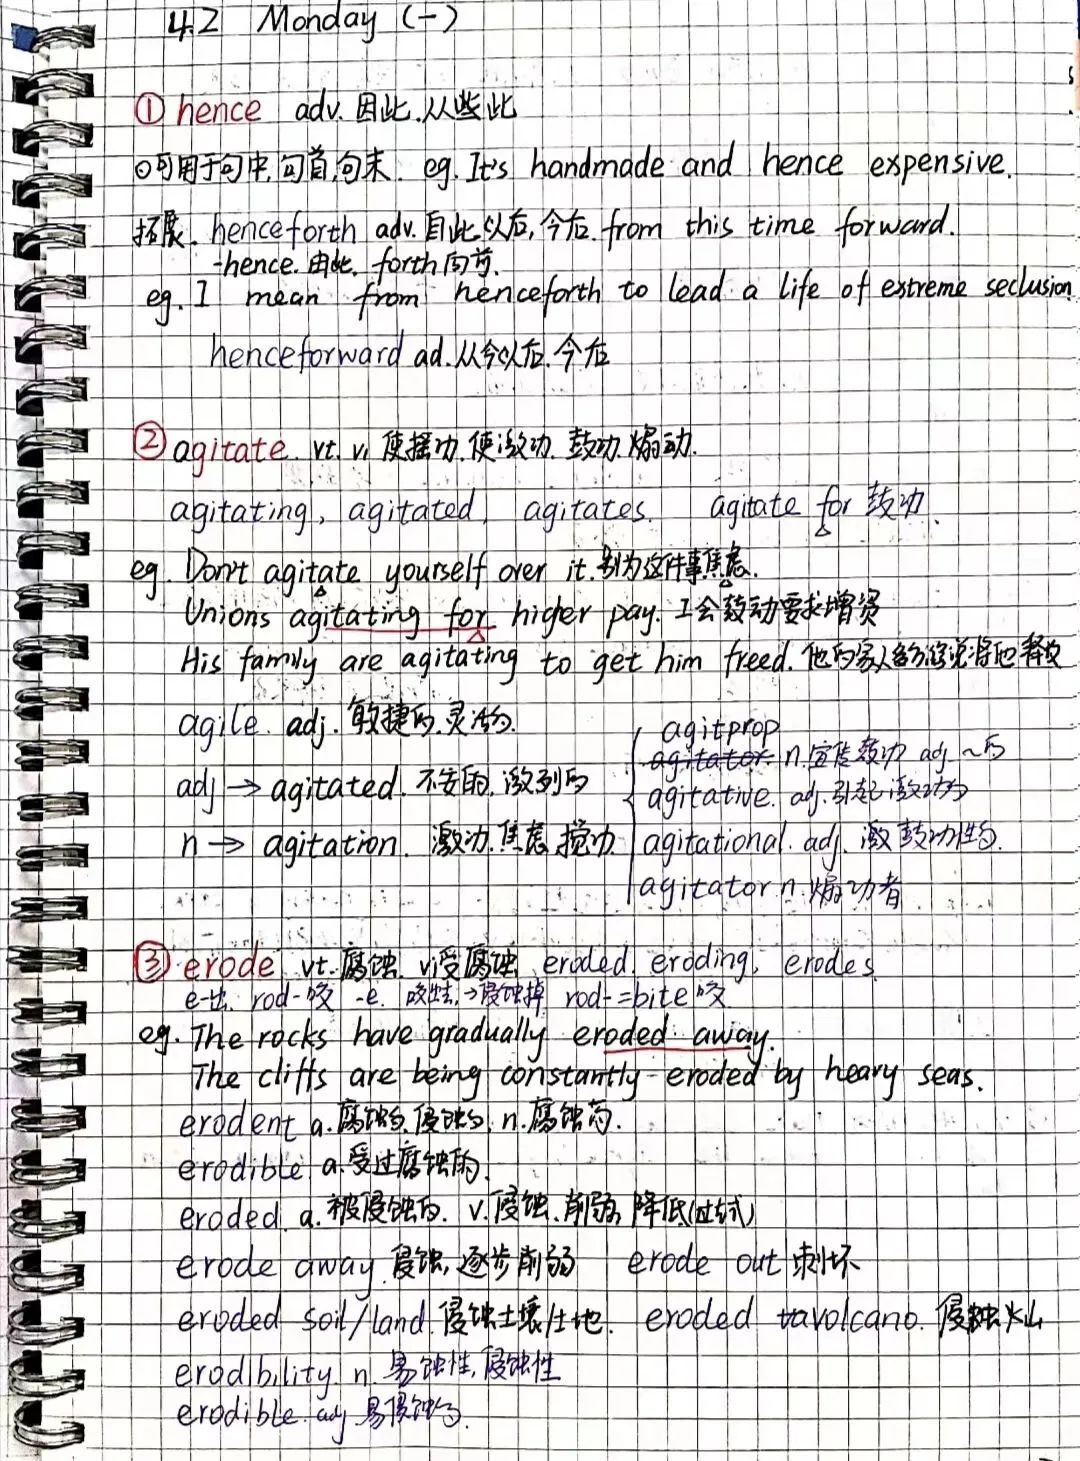 4.2 Monday (一)
① hence adv. 因此.从些此
⊙可用于句中,句首,句末. eg. It's handmade and hence expensive.
拓展. henceforth adv. 自此以后,今后. from this time forward.
-hence. 由此. forth 向前.
eg. I mean from henceforth to lead a life of extreme seclusion
henceforward ad. 从今以后.今后
② agitate. vt. vi 使摇动.使激动.鼓动.煽动.
agitating, agitated, agitates. agitate for 鼓动.
eg. Don't agitate yourself over it. 别为这件事焦虑.
Unions agitating for higher pay. 工会鼓动要求增资
His family are agitating to get him freed. 他的家人 将他释放
agile. adj. 敏捷的.灵活的.
agitprop
adj → agitated. 不安的,激烈的
agitator n.宣传鼓动 adj ~的
agitative. adj. 引起激动的
n → agitation. 激动.焦虑.搅动
agitational. adj. 激鼓动性的.
agitator n. 煽动者
③ erode vt. 腐蚀. vi受腐蚀 eroded. eroding, erodes
e-出. rod-咬 -e. →侵蚀掉 rod-=bite 咬
eg. The rocks have gradually eroded away.
The cliffs are being constantly eroded by heavy seas.
erodent a.腐蚀的,侵蚀的; n.腐蚀药.
erodible. a.受过腐蚀的.
eroded. a. 被侵蚀的. v.侵蚀.削弱,降低(过去式)
erode away 侵蚀,逐步削弱 erode out 刺坏
eroded soil/land. 侵蚀土壤/土地. eroded volcano. 侵蚀火山
erodibility. n. 易蚀性,侵蚀性
erodible. adj 易侵蚀的.